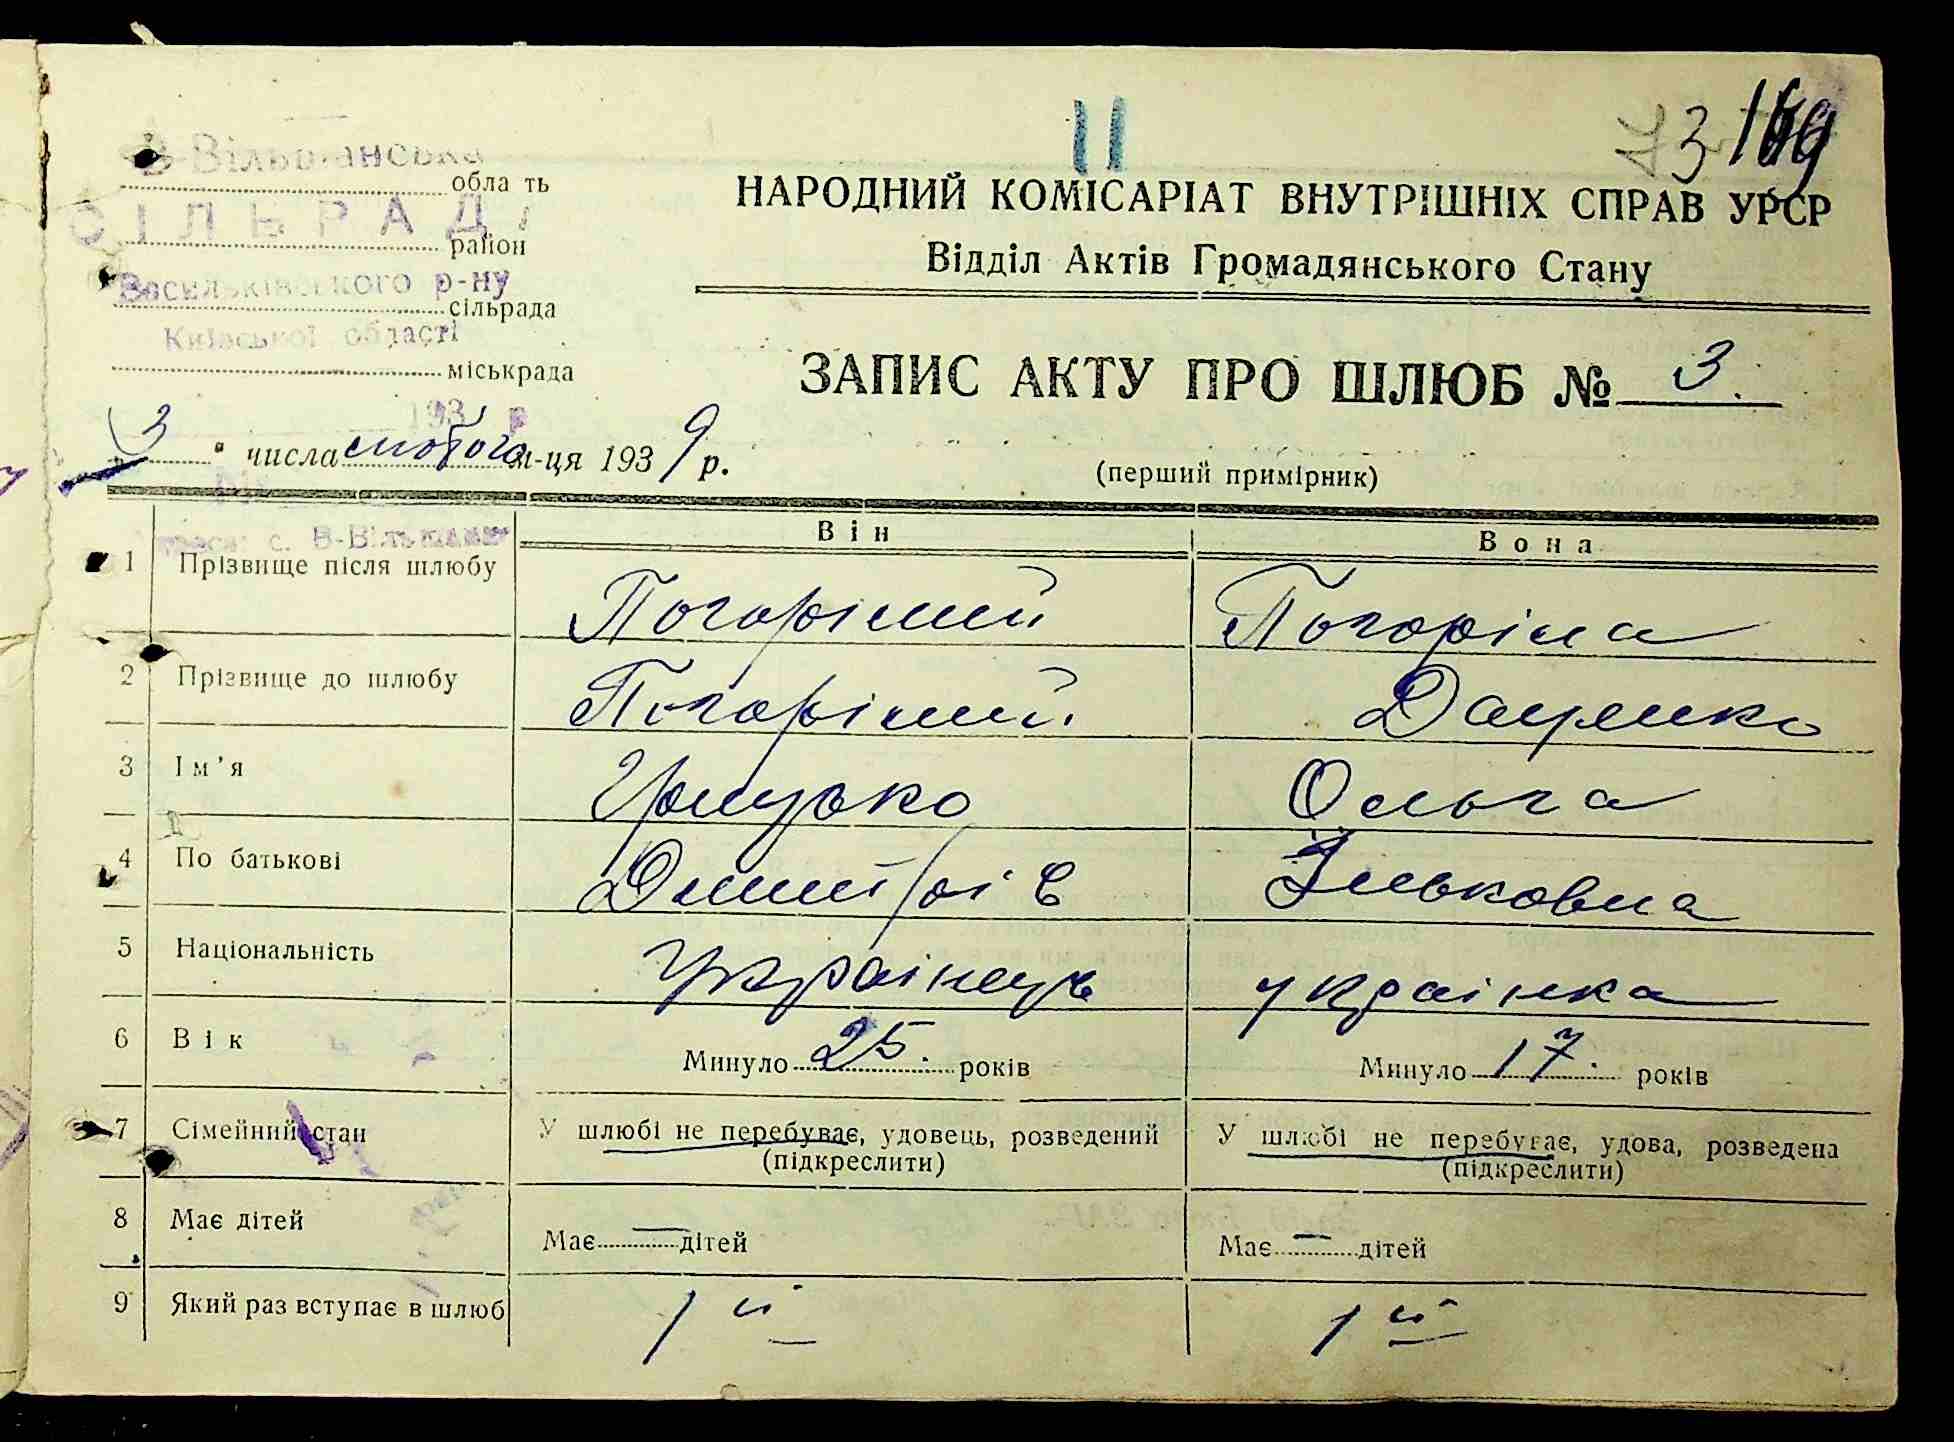 11
73 169
В-Вільшанська
область
СІЛЬРАДА
район
Васильківського р-ну
сільрада
Київської області
міськрада
НАРОДНИЙ КОМІСАРІАТ ВНУТРІШНІХ СПРАВ УРСР
Відділ Актів Громадянського Стану
ЗАПИС АКТУ ПРО ШЛЮБ № 3.
193 р
„3" числа лютого м-ця 1939 р.
(перший примірник)
с. В-Вільшанка
Він Вона
1 Прізвище після шлюбу Погорілий Погоріла
2 Прізвище до шлюбу Погорілий Даценко
3 Ім'я Грицько Ольга
4 По батькові Дмитрів Ільковна
5 Національність Українець українка
6 Вік Минуло 25. років Минуло 17. років
7 Сімейний стан У шлюбі не перебуває, удовець, розведений У шлюбі не перебуває, удова, розведена
(підкреслити) (підкреслити)
8 Має дітей Має — дітей Має — дітей
9 Який раз вступає в шлюб 1й 1й